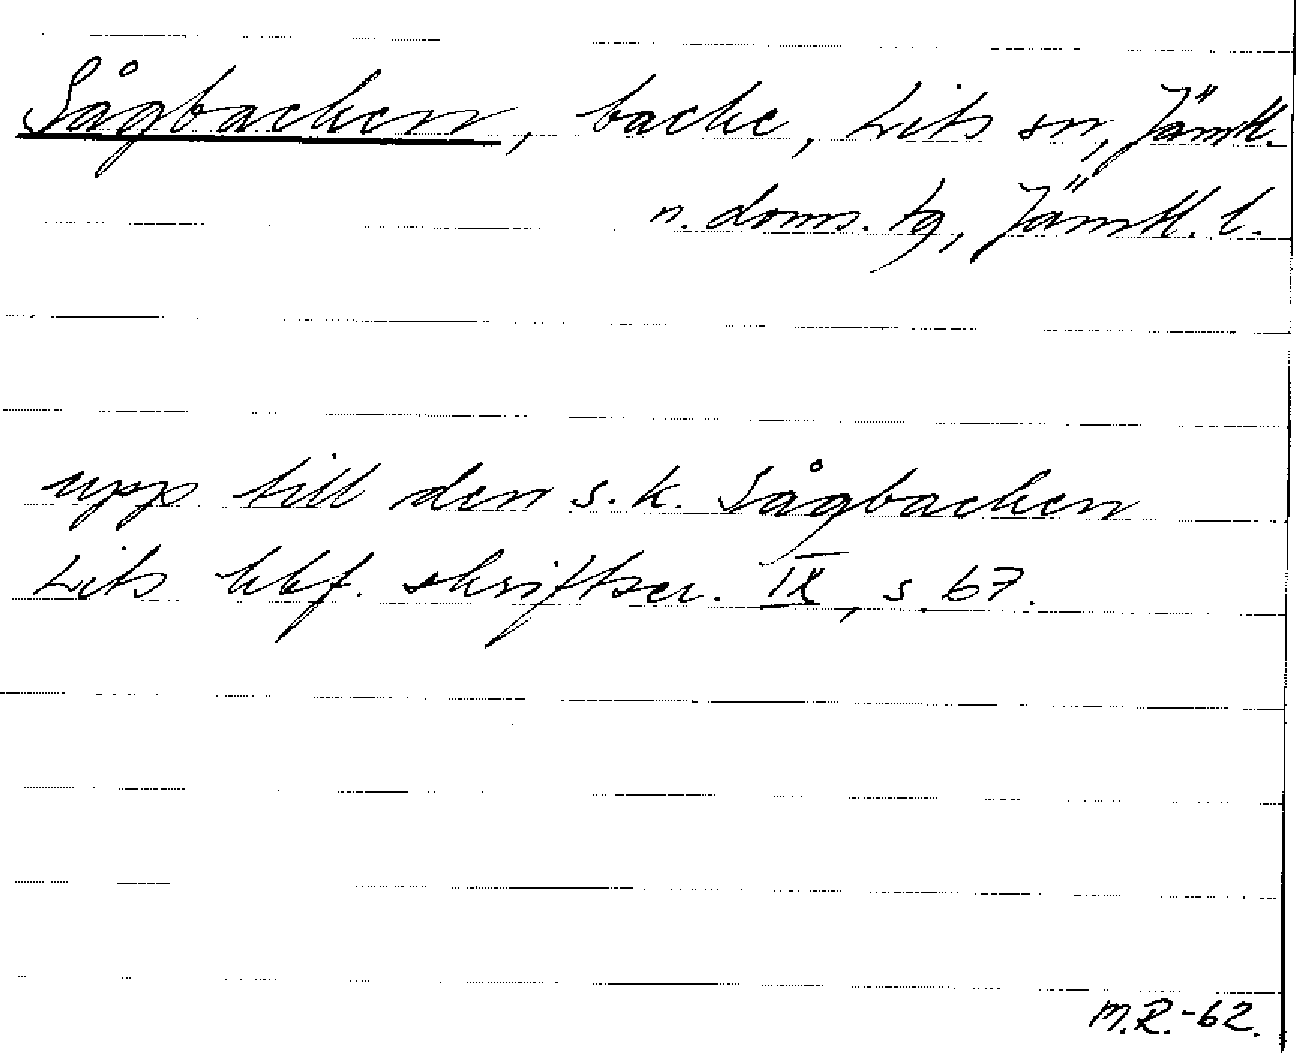 Sågbacken, backe, Lits sn, Jämtl.
n. doms. tg, Jämtl. l.
upp till den s.k. Sågbacken
Lits hbf. skriftser. IX, s. 67.
M.R.-62.